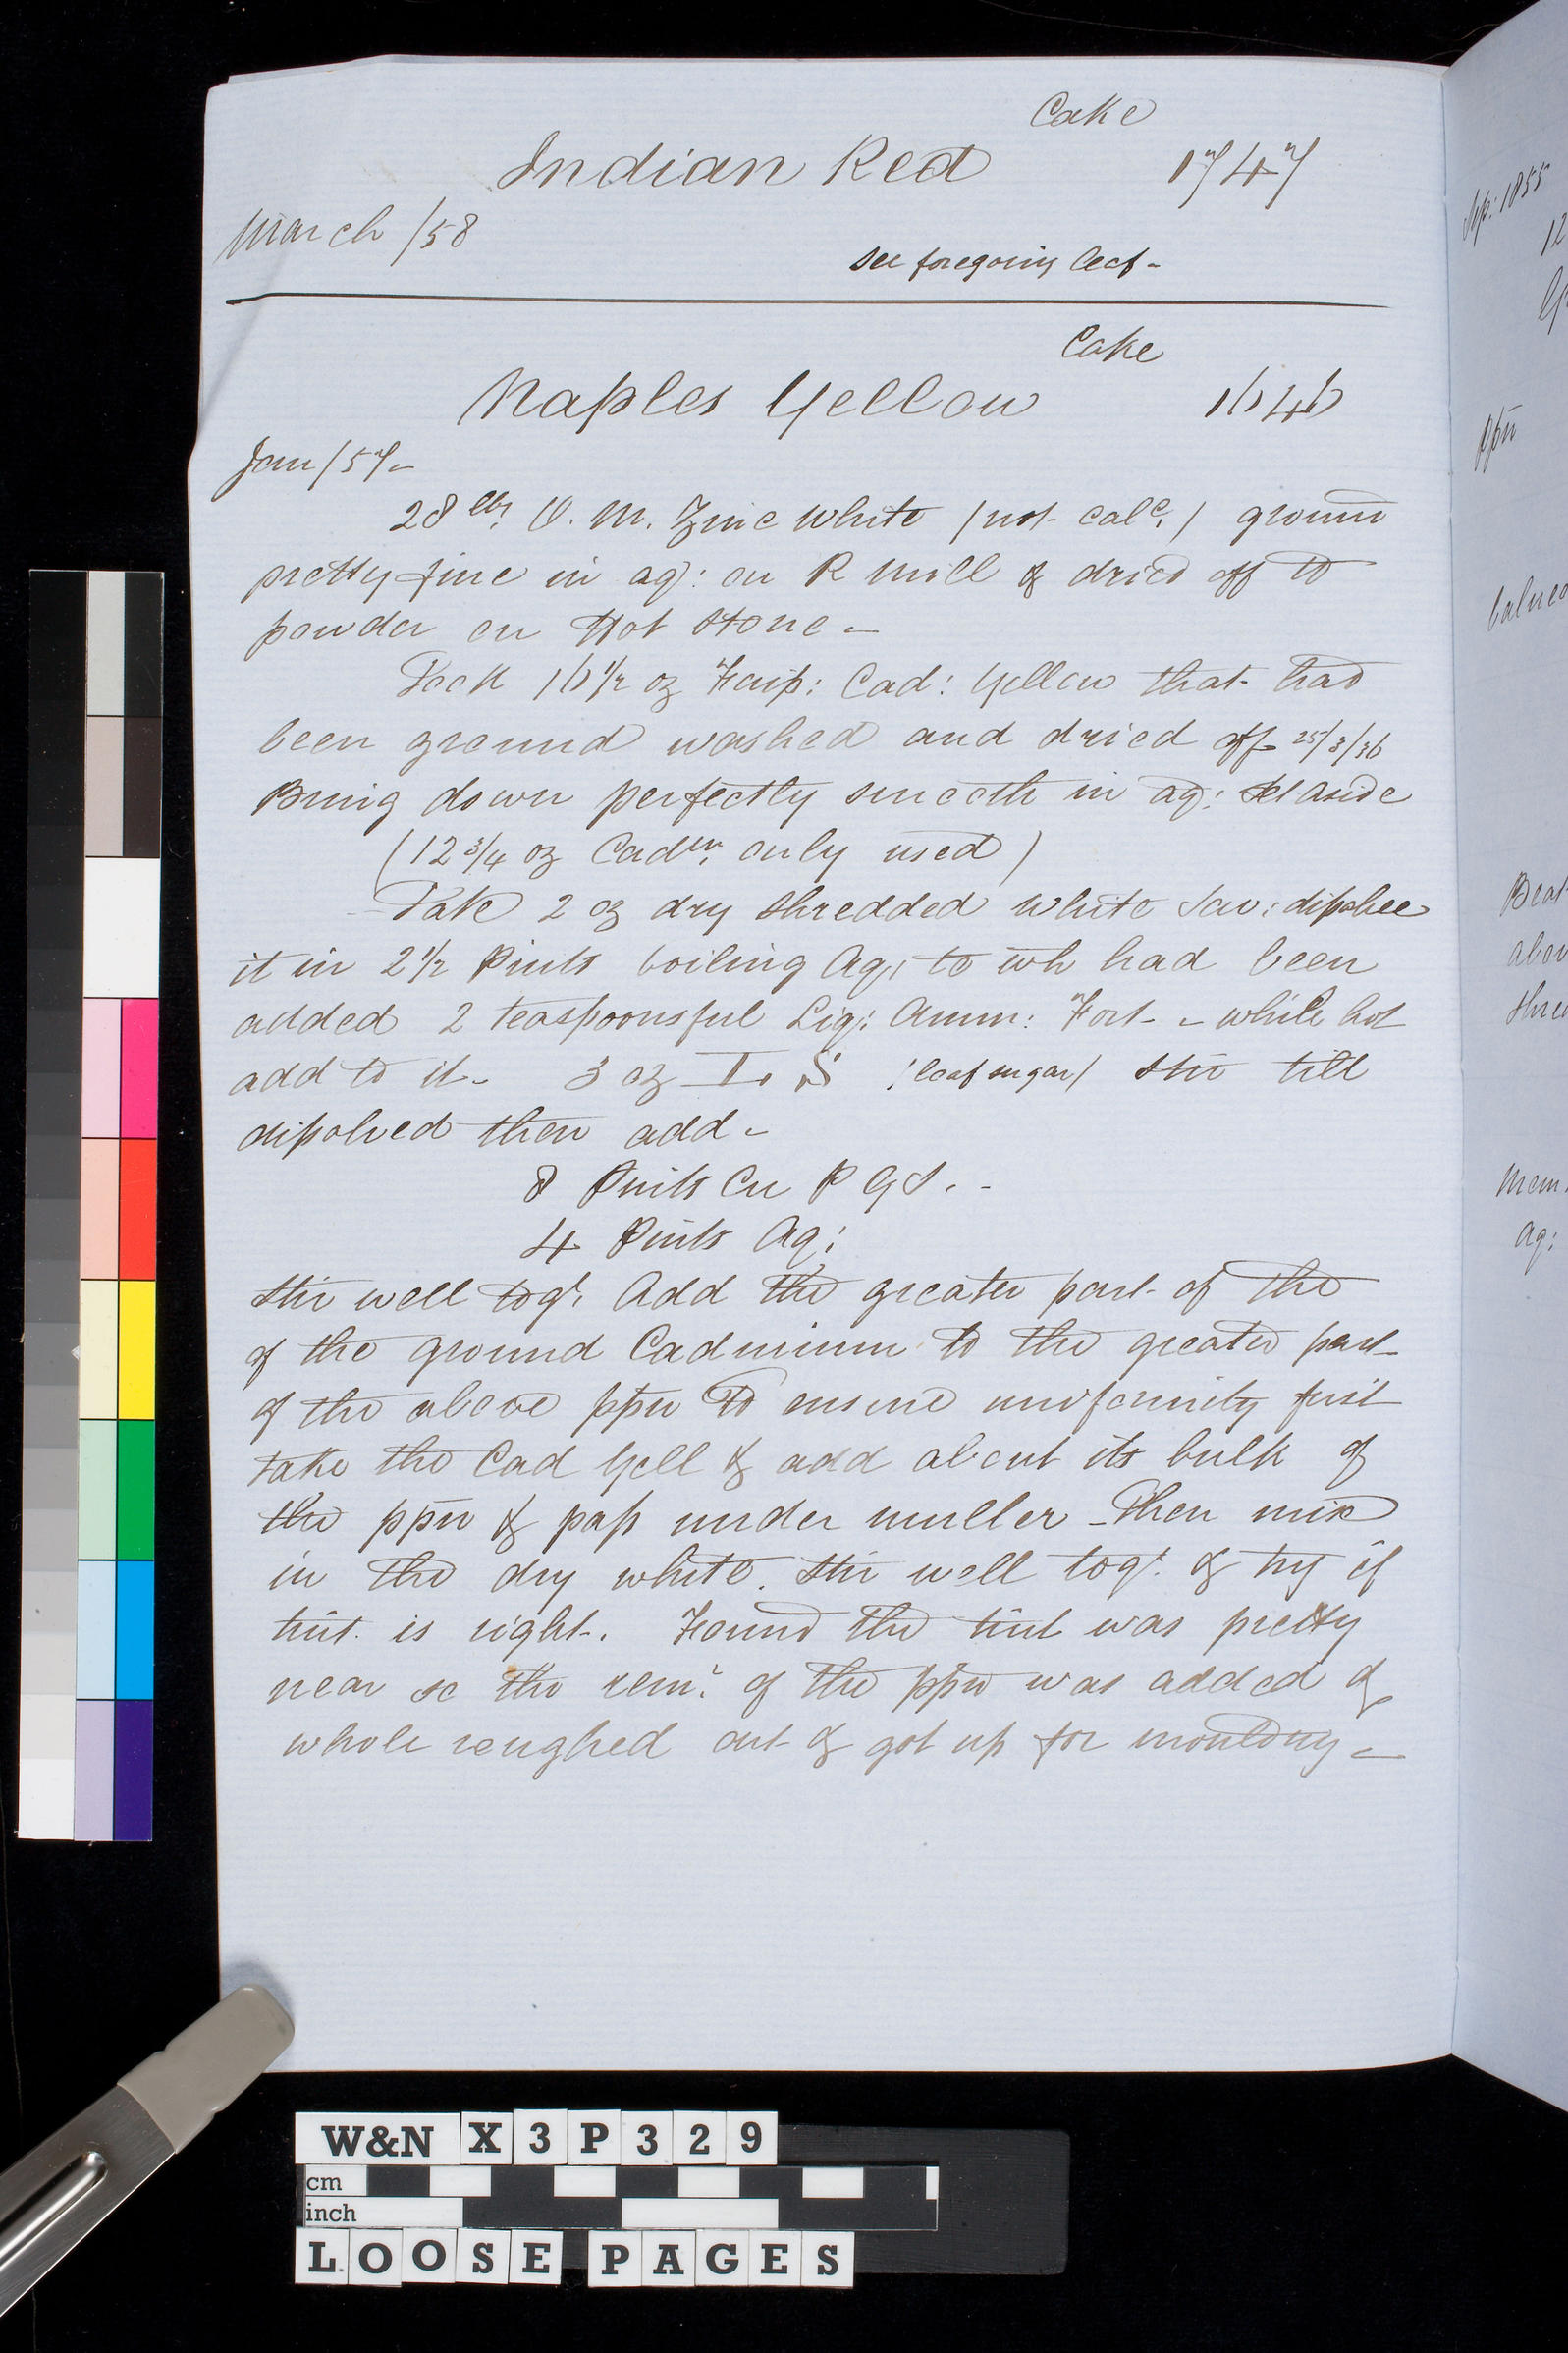 Cake
Indian Red 1747
March /58
see foregoing leaf -
Cake
Naples Yellow 1646
Jan /57 -
28 lbs. O. M. Zinc White (not calc.) ground
pretty fine in aq: on R Mill & dried off to
powder on Hot Stone -
Took 16 1/2 oz Cad: Yellow that had
been ground washed and dried off 25/3/36
Bring down perfectly smooth in aq: set aside
(12 3/4 oz Cadm. only used)
Take 2 oz dry shredded white dissolve
it in 2 1/2 Pints boiling Aq, to wh had been
added 2 teaspoonsful Liq: Amm: Fort - - while hot
add to it - 3 oz L. S (loaf sugar) stir till
dissolved then add -
8 Pints Cu P G S . -
4 Pints Aq:
stir well togr. Add the greater part of the
of the ground Cadmium to the greater part
of the above ppn To ensure uniformity first
take the Cad Yell & add about its bulk of
the ppn & pass under muller - Then mix
in the dry white. stir well togr. & try if
tint is right -. Found the tint was pretty
near so the remr. of the ppn was added &
whole roughed out & got up for moulding -
Sep: 1855
12
ppn
Mem.
Aq:
W&N X3P329
cm
inch
LOOSE PAGES